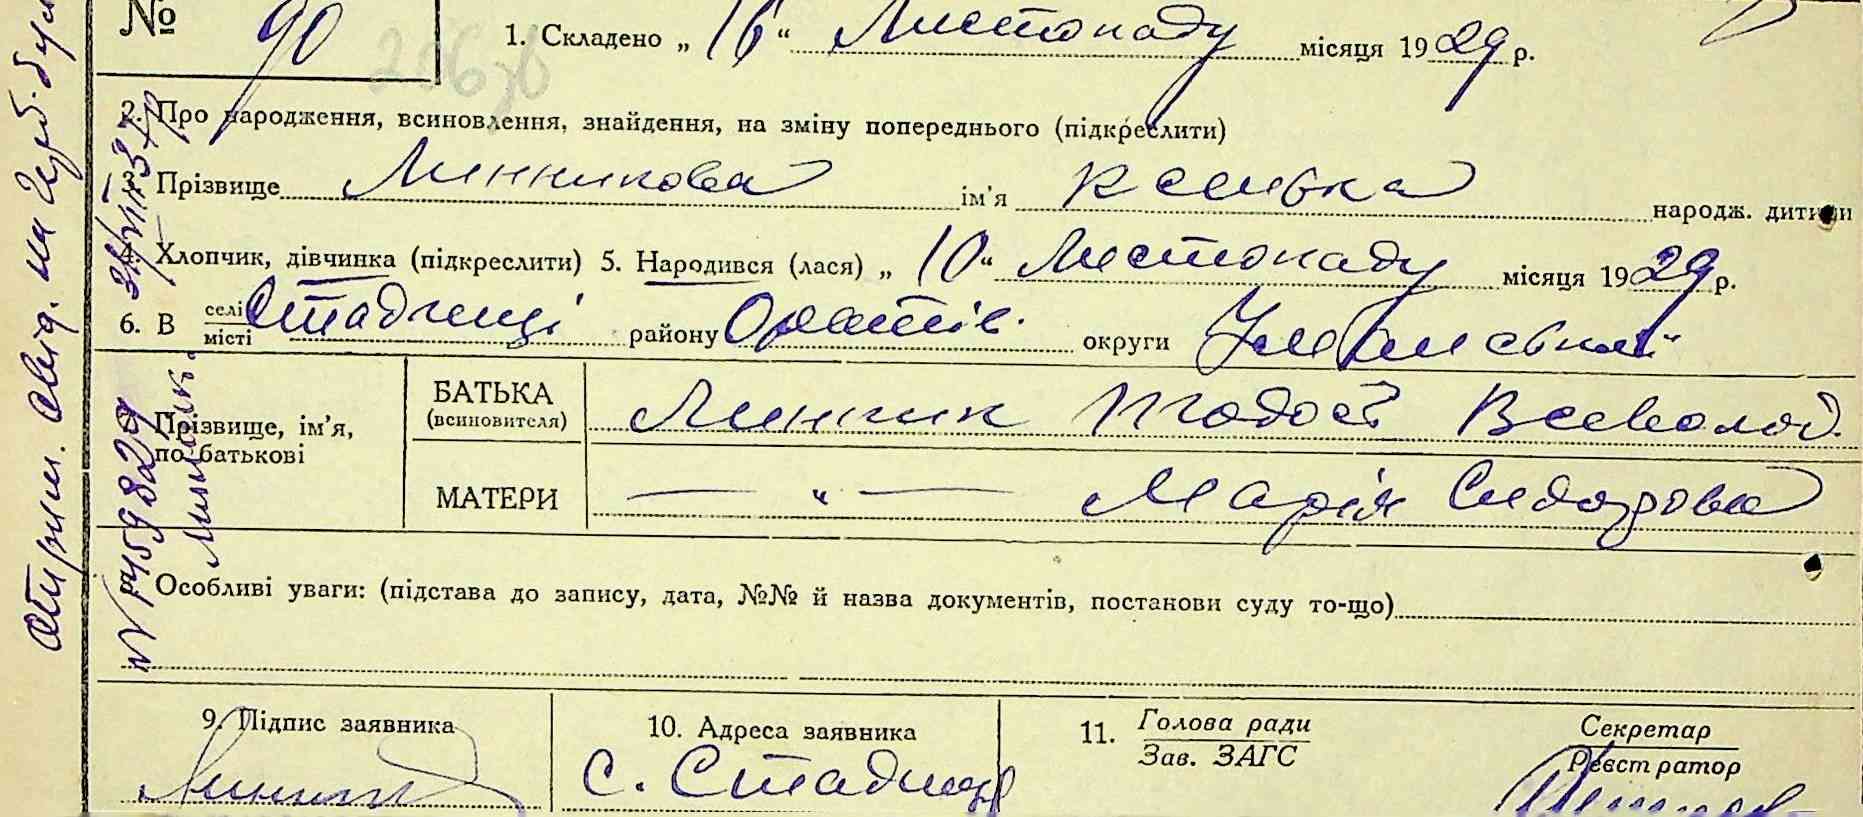 № 90
1. Складено „16“ Листопаду місяця 1929 р.
2. Про народження, всиновлення, знайдення, на зміну попереднього (підкреслити)
3. Прізвище Линникова ім'я Ксенька народж. дитини
4. Хлопчик, дівчинка (підкреслити) 5. Народився (лася) „10“ Листопаду місяця 1929 р.
6. В селі Стадниці району Оратів. округи Уманської
місті
7. Прізвище, ім'я, по батькові
БАТЬКА (всиновителя) Линник Тодось Всеволод.
МАТЕРИ — „ — Марія Сидорова
Особливі уваги: (підстава до запису, дата, №№ й назва документів, постанови суду то-що)
9. Підпис заявника
Линник
10. Адреса заявника
с. Стадниця
11. Голова ради
Зав. ЗАГС
Секретар
Реєстратор